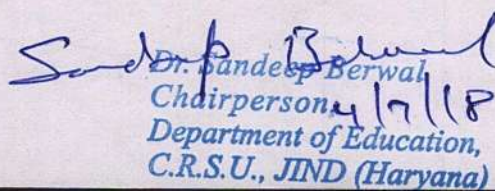 Sandeep Berwal
Dr. Sandeep Berwal
Chairperson 4/7/18
Department of Education,
C.R.S.U., JIND (Haryana)